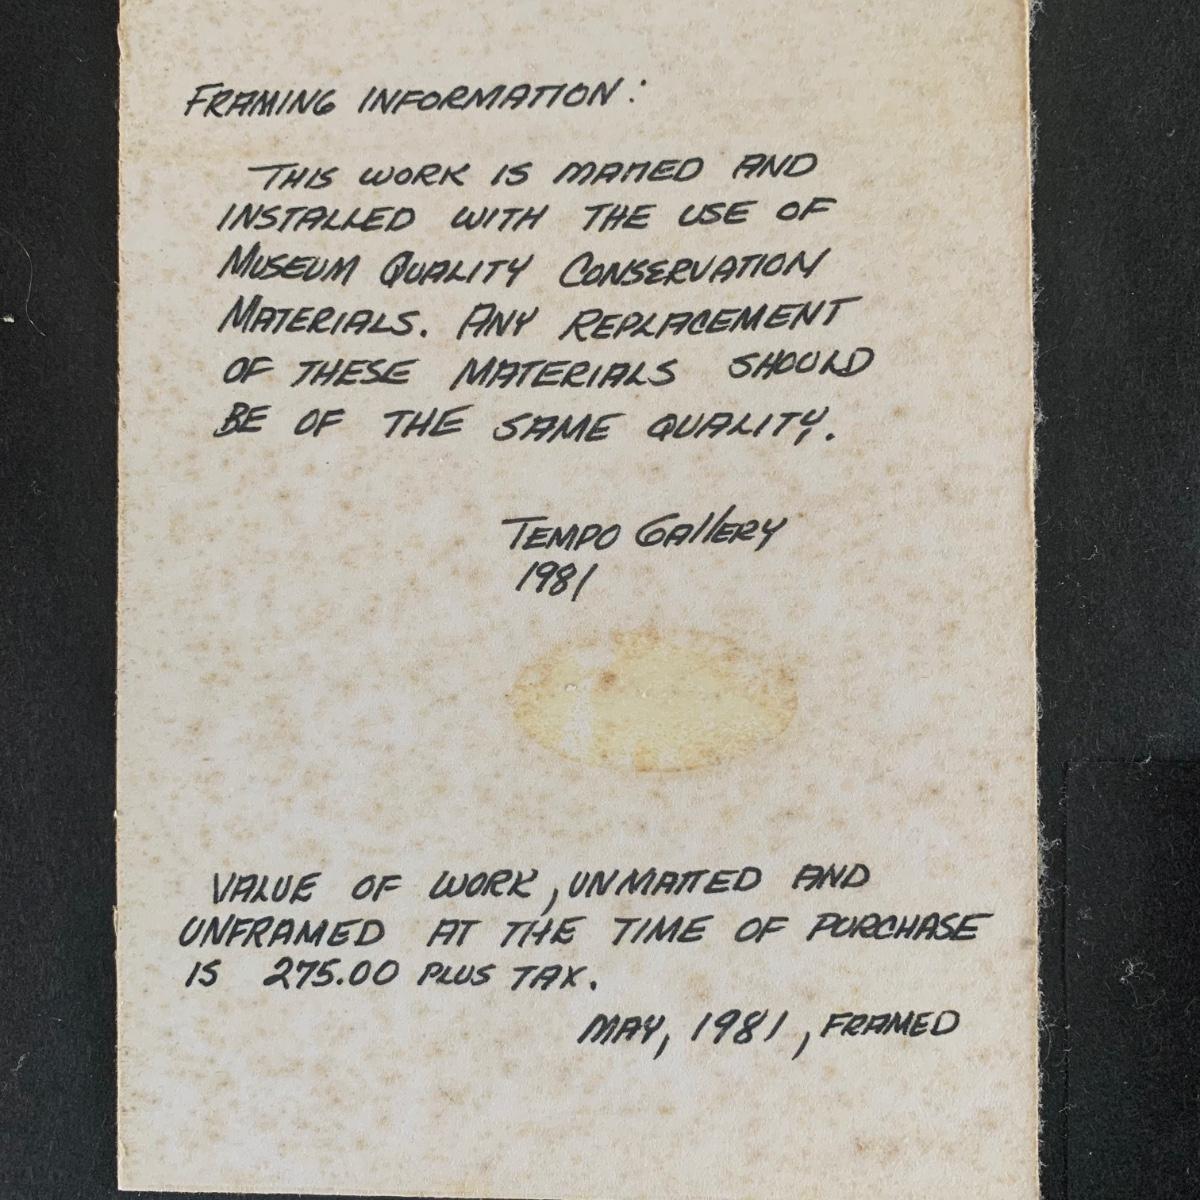 FRAMING INFORMATION:
THIS WORK IS MATTED AND
INSTALLED WITH THE USE OF
MUSEUM QUALITY CONSERVATION
MATERIALS. ANY REPLACEMENT
OF THESE MATERIALS SHOULD
BE OF THE SAME QUALITY.
TEMPO GALLERY
1981
VALUE OF WORK, UNMATTED AND
UNFRAMED AT THE TIME OF PURCHASE
IS 275.00 PLUS TAX.
MAY, 1981, FRAMED